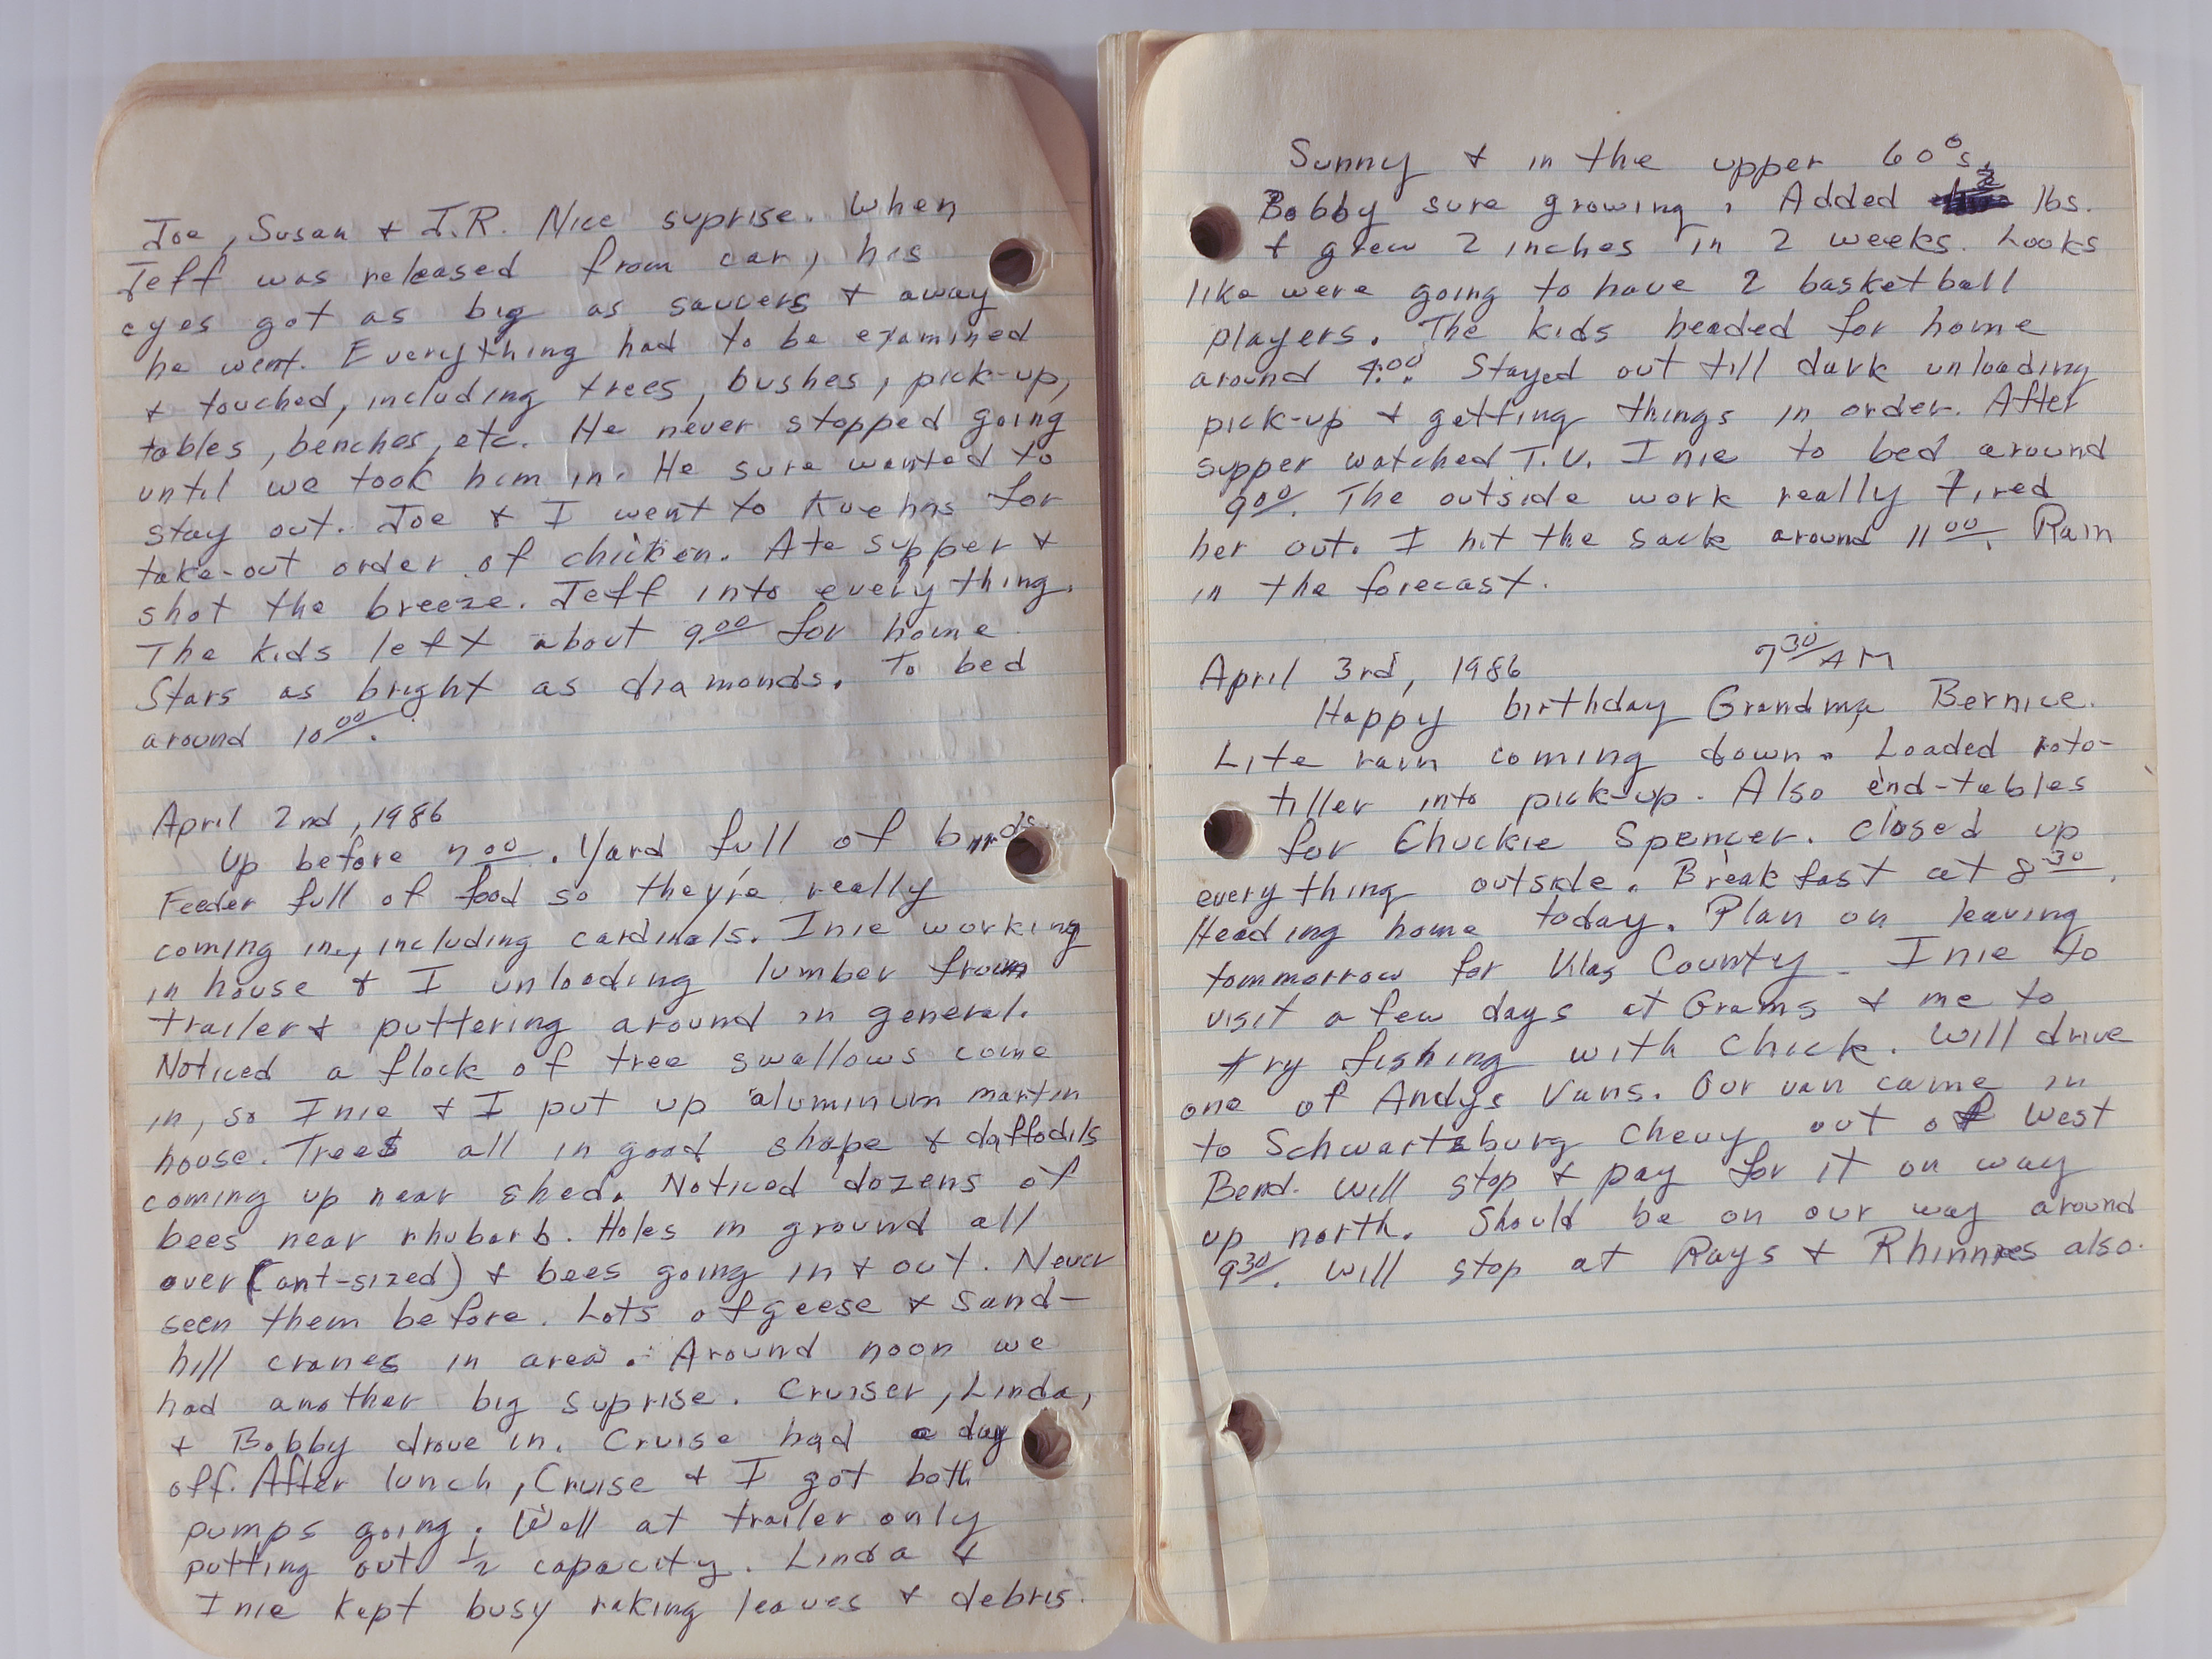 Joe, Susan & J.R. Nice suprise. When
Jeff was released from car, his
eyes got as big as saucers & away
he went. Everything had to be examined
& touched, including trees, bushes, pick-up,
tables, benches, etc. He never stopped going
until we took him in. He sure wanted to
stay out. Joe & I went to Kuehns for
take-out order of chicken. Ate supper &
shot the breeze. Jeff into everything.
The kids left about 9:00 for home.
Stars as bright as diamonds. To bed
around 10:00.
April 2nd, 1986
Up before 7:00. Yard full of birds.
Feeder full of food so they're really
coming in, including cardinals. Inie working
in house & I unloading lumber from
trailer & puttering around in general.
Noticed a flock of tree swallows come
in, so Inie & I put up aluminum martin
house. Trees all in good shape & daffodils
coming up near shed. Noticed dozens of
bees near rhubarb. Holes in ground all
over (ant-sized) & bees going in & out. Never
seen them before. Lots of geese & sand-
hill cranes in area. Around noon we
had another big suprise. Cruiser, Linda,
& Bobby drove in. Cruise had a day
off. After lunch, Cruise & I got both
pumps going. Well at trailer only
putting out 1/2 capacity. Linda &
Inie kept busy raking leaves & debris.
Sunny & in the upper 60°s.
Bobby sure growing. Added 2 lbs.
& grew 2 inches in 2 weeks. Looks
like were going to have 2 basketball
players. The kids headed for home
around 4:00. Stayed out till dark unloading
pick-up & getting things in order. After
supper watched T.V. Inie to bed around
9:00. The outside work really tired
her out. I hit the sack around 11:00. Rain
in the forecast.
April 3rd, 1986 7:30 AM
Happy birthday Grandma Bernice.
Lite rain coming down. Loaded roto-
tiller into pick-up. Also end-tables
for Chuckie Spencer. Closed up
everything outside. Breakfast at 8:30.
Heading home today. Plan on leaving
tommorrow for Vilas County. Inie to
visit a few days at Grams & me to
try fishing with Chick. Will drive
one of Andys Vans. Our van came in
to Schwartzburg Chevy out of West
Bend. Will stop & pay for it on way
up north. Should be on our way around
9:30. Will stop at Rays & Rhinnies also.